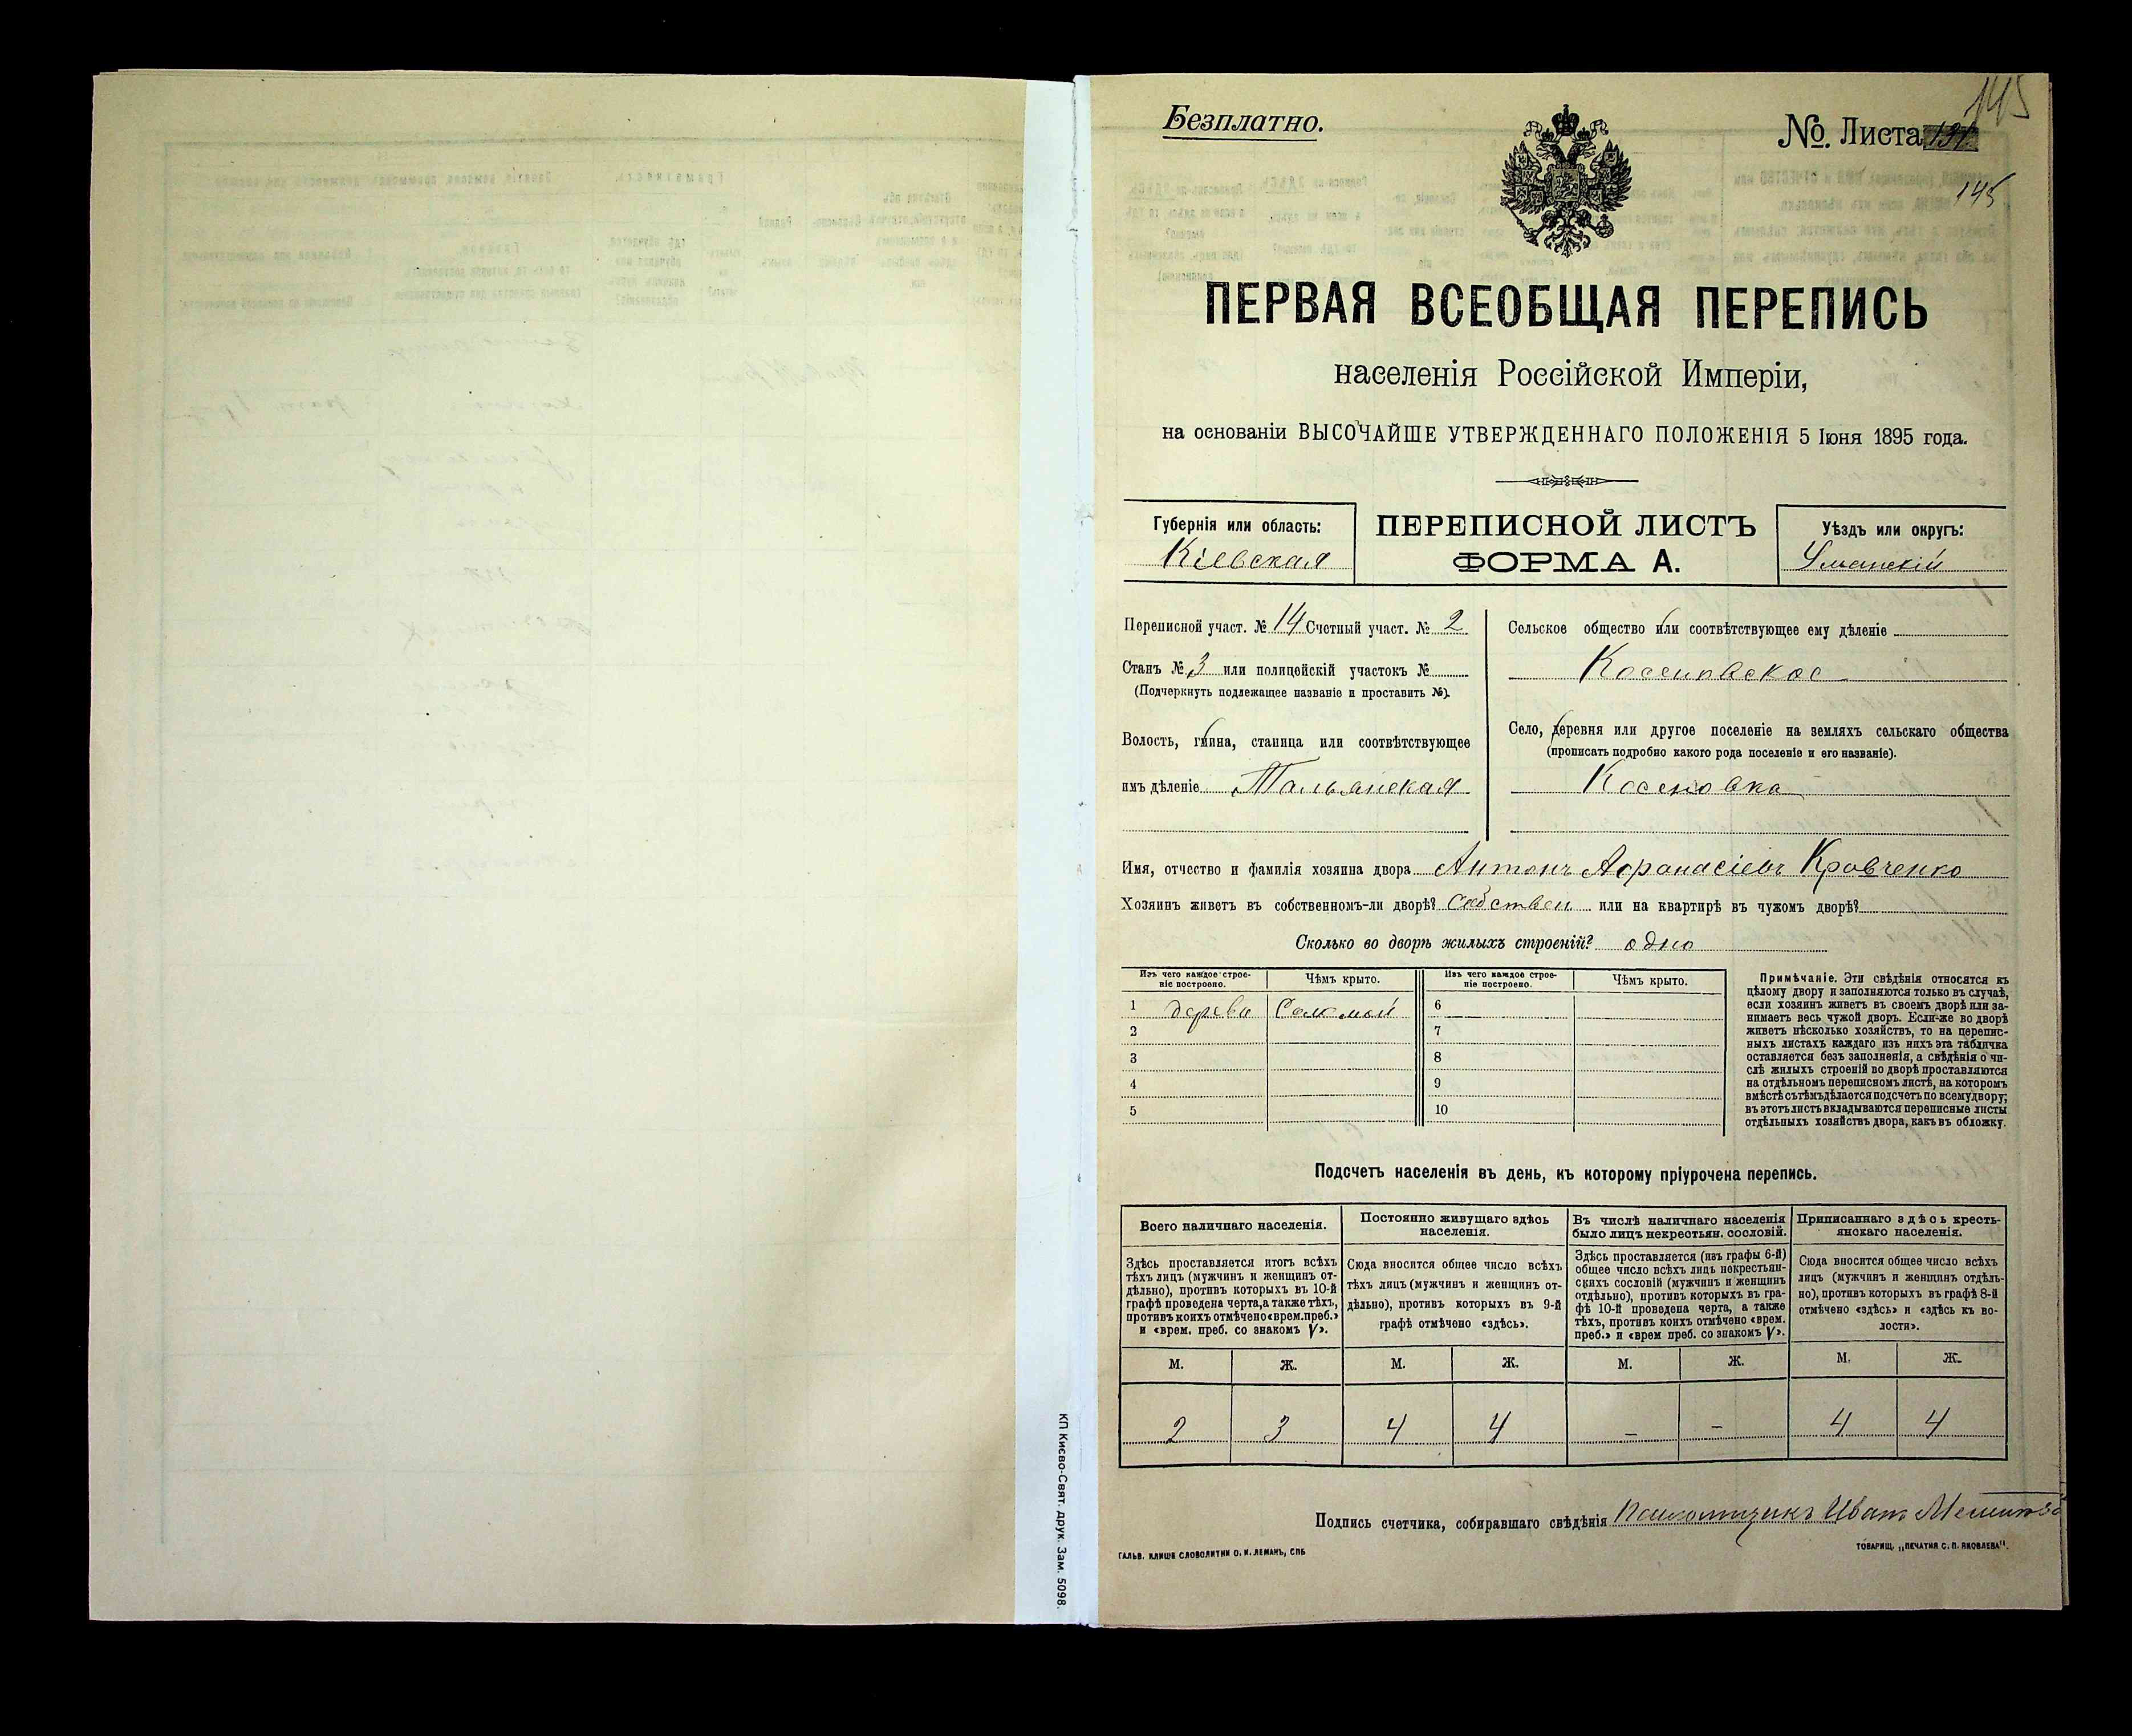 145
Безплатно.
№. Листа
145
ПЕРВАЯ ВСЕОБЩАЯ ПЕРЕПИСЬ
населенія Россійской Имперіи,
на основаніи ВЫСОЧАЙШЕ УТВЕРЖДЕННАГО ПОЛОЖЕНІЯ 5 Іюня 1895 года.
Губернія или область:
Кіевская
ПЕРЕПИСНОЙ ЛИСТЪ
ФОРМА А.
Уѣздъ или округъ:
Уманскій
Переписной участ. № 14 Счетный участ. № 2
Станъ № 3 или полицейскій участокъ №
(Подчеркнуть подлежащее названіе и проставить №).
Волость, гмина, станица или соотвѣтствующее
имъ дѣленіе Тальянская
Сельское общество или соотвѣтствующее ему дѣленіе
Косеновское
Село, деревня или другое поселеніе на земляхъ сельскаго общества
(прописать подробно какого рода поселеніе и его названіе).
Косеновка
Имя, отчество и фамилія хозяина двора Антонъ Афанасіевъ Кравченко
Хозяинъ живетъ въ собственномъ-ли дворѣ? Собствен. или на квартирѣ въ чужомъ дворѣ?
Сколько во дворѣ жилыхъ строеній? одно
Изъ чего каждое строе-
ніе построено.
Чѣмъ крыто.
Изъ чего каждое строе-
ніе построено.
Чѣмъ крыто.
1 дерева Соломой 6
2 7
3 8
4 9
5 10
Примѣчаніе. Эти свѣдѣнія относятся къ
цѣлому двору и заполняются только въ случаѣ,
если хозяинъ живетъ въ своемъ дворѣ или за-
нимаетъ весь чужой дворъ. Если-же во дворѣ
живетъ нѣсколько хозяйствъ, то на перепис-
ныхъ листахъ каждаго изъ нихъ эта табличка
оставляется безъ заполненія, а свѣдѣнія о чи-
слѣ жилыхъ строеній во дворѣ проставляются
на отдѣльномъ переписномъ листѣ, на которомъ
вмѣстѣ съ тѣмъ дѣлается подсчетъ по всему двору;
въ этотъ листъ вкладываются переписные листы
отдѣльныхъ хозяйствъ двора, какъ въ обложку.
Подсчетъ населенія въ день, къ которому пріурочена перепись.
Всего наличнаго населенія.
Здѣсь проставляется итогъ всѣхъ
тѣхъ лицъ (мужчинъ и женщинъ от-
дѣльно), противъ которыхъ въ 10-й
графѣ проведена черта, а также тѣхъ,
противъ коихъ отмѣчено «врем. преб.»
и «врем. преб. со знакомъ V».
Постоянно живущаго здѣсь
населенія.
Сюда вносится общее число всѣхъ
тѣхъ лицъ (мужчинъ и женщинъ от-
дѣльно), противъ которыхъ въ 9-й
графѣ отмѣчено «здѣсь».
Въ числѣ наличнаго населенія
было лицъ некрестьян. сословій.
Здѣсь проставляется (изъ графы 6-й)
общее число всѣхъ лицъ некрестьян-
скихъ сословій (мужчинъ и женщинъ
отдѣльно), противъ которыхъ въ гра-
фѣ 10-й проведена черта, а также
тѣхъ, противъ коихъ отмѣчено «врем.
преб.» и «врем преб. со знакомъ V».
Приписаннаго здѣсь кресть-
янскаго населенія.
Сюда вносится общее число всѣхъ
лицъ (мужчинъ и женщинъ отдѣль-
но), противъ которыхъ въ графѣ 8-й
отмѣчено «здѣсь» и «здѣсь къ во-
лости».
М. Ж. М. Ж. М. Ж. М. Ж.
2 3 4 4 – – 4 4
Подпись счетчика, собиравшаго свѣдѣнія Иванъ
ГАЛЬВ. КЛИШЕ СЛОВОЛИТНИ О. И. ЛЕМАНЪ, СПБ
ТОВАРИЩ. „ПЕЧАТНЯ С. П. ЯКОВЛЕВА".
КП Києво-Свят. друк. Зам. 5098.